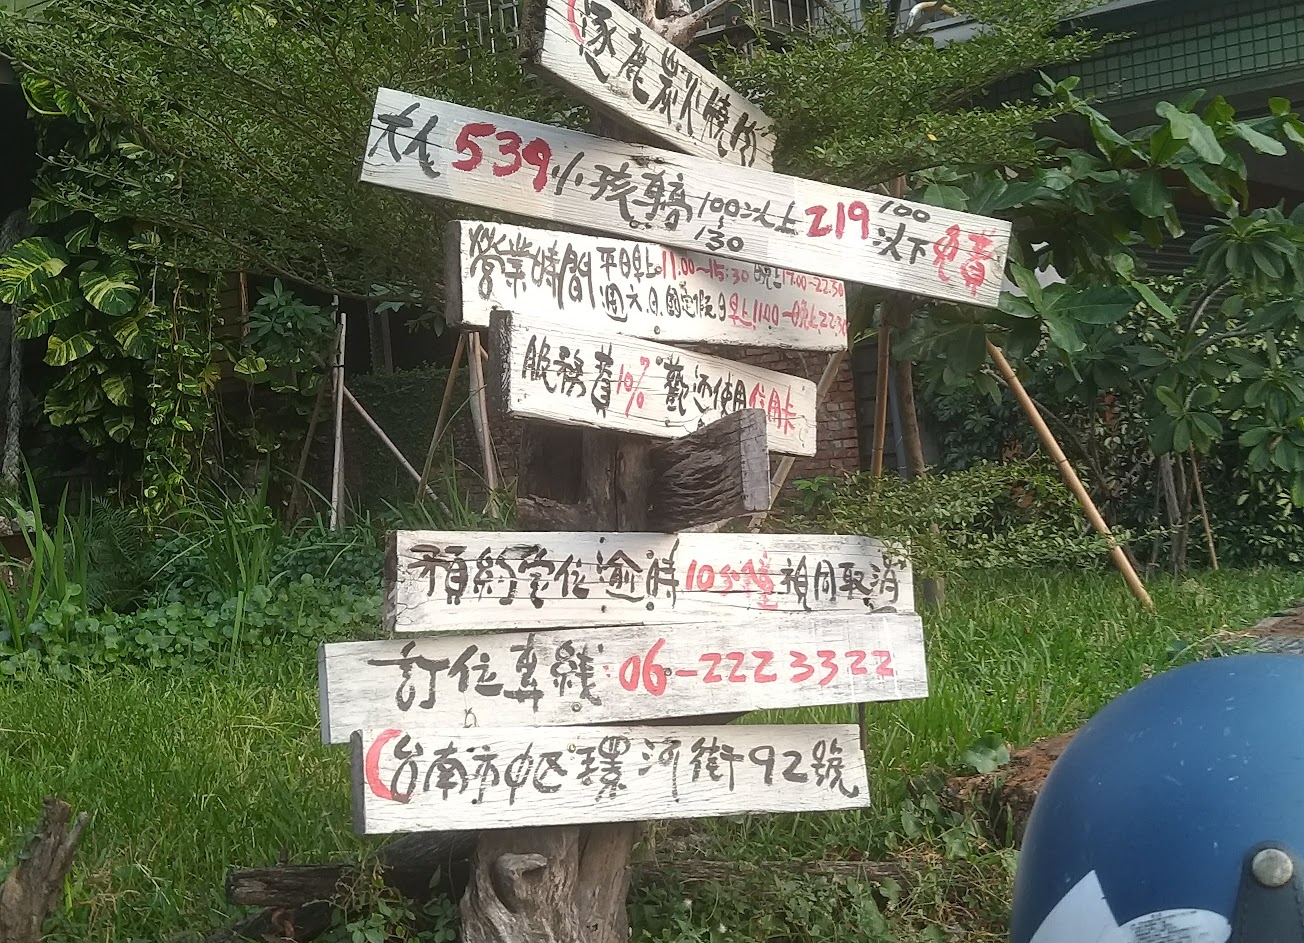 逐鹿炭火燒肉
大人539小孩身高100以上219 100以下免費
130
營業時間 平日早上11:00~15:30 晚上17:00~22:30
週六.日.國定假日早上11:00~晚上22:30
服務費10% 歡迎使用信用卡
預約定位逾時10分鐘視同取消
訂位專線:06-2223322
台南市中西區環河街92號